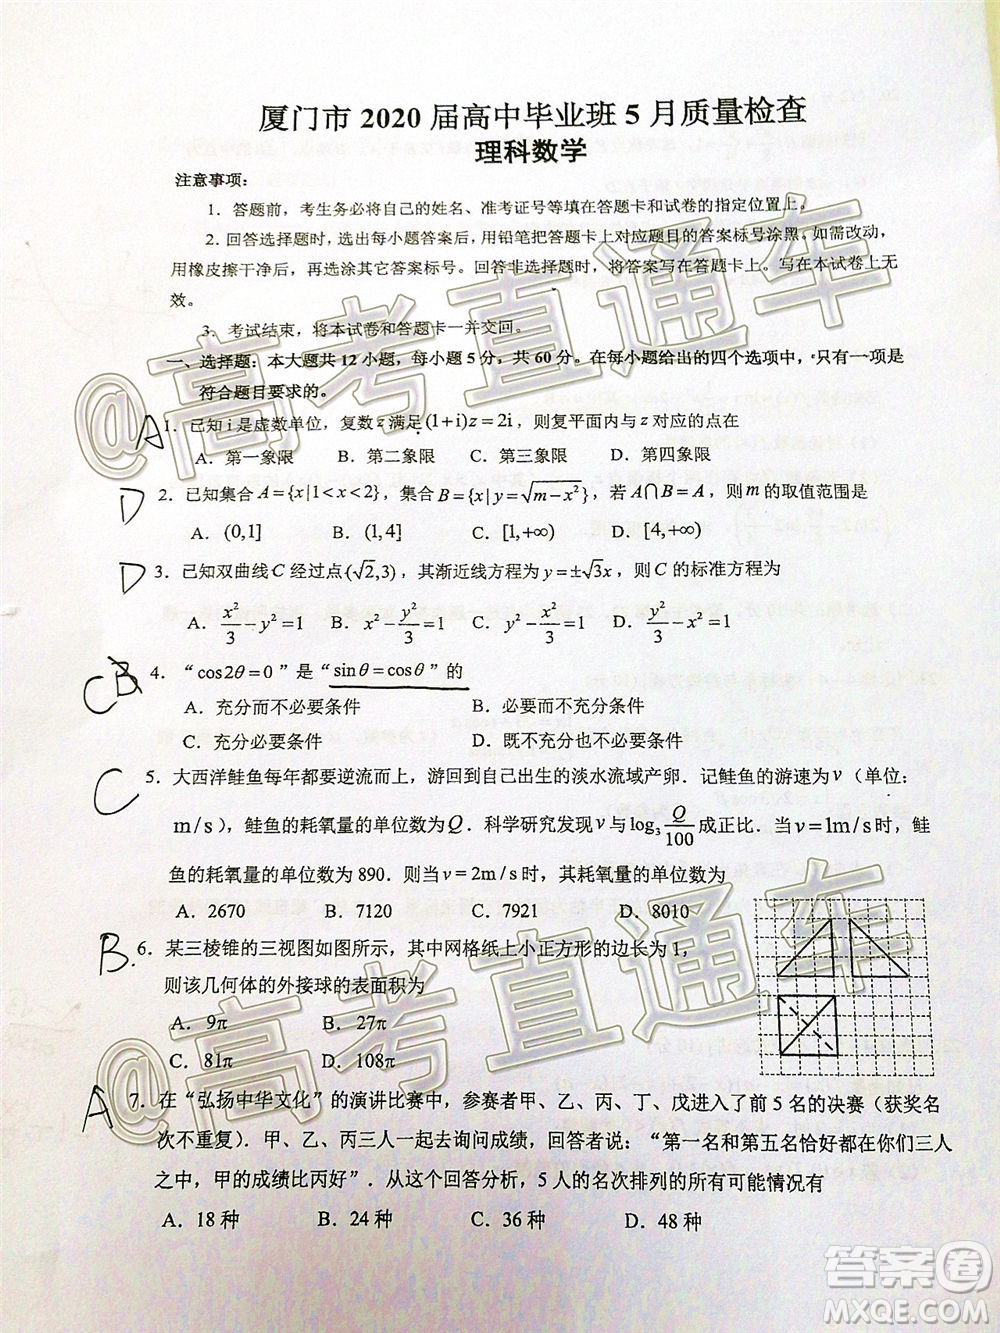 厦门市 2020 届高中毕业班 5 月质量检查
理科数学
注意事项：
1．答题前，考生务必将自己的姓名、准考证号等填在答题卡和试卷的指定位置上。
2．回答选择题时，选出每小题答案后，用铅笔把答题卡上对应题目的答案标号涂黑。如需改动，
用橡皮擦干净后，再选涂其它答案标号。回答非选择题时，将答案写在答题卡上。写在本试卷上无
效。
3．考试结束，将本试卷和答题卡一并交回。
一、选择题：本大题共 12 小题，每小题 5 分，共 60 分。在每小题给出的四个选项中，只有一项是
符合题目要求的。
A 1．已知 i 是虚数单位，复数 z 满足 (1+i)z=2i，则复平面内与 z 对应的点在
A．第一象限 B．第二象限 C．第三象限 D．第四象限
D 2．已知集合 A={x|1<x<2}，集合 B={x|y=√(m-x²)}，若 A∩B=A，则 m 的取值范围是
A．(0,1] B．(1,4] C．[1,+∞) D．[4,+∞)
D 3．已知双曲线 C 经过点(√2,3)，其渐近线方程为 y=±√3x，则 C 的标准方程为
A．x²/3-y²=1 B．x²-y²/3=1 C．y²-x²/3=1 D．y²/3-x²=1
C B 4．“cos2θ=0”是“sinθ=cosθ”的
A．充分而不必要条件 B．必要而不充分条件
C．充分必要条件 D．既不充分也不必要条件
C 5．大西洋鲑鱼每年都要逆流而上，游回到自己出生的淡水流域产卵．记鲑鱼的游速为 v（单位：
m/s），鲑鱼的耗氧量的单位数为 Q．科学研究发现 v 与 log₃ Q/100 成正比．当 v=1m/s 时，鲑
鱼的耗氧量的单位数为 890．则当 v=2m/s 时，其耗氧量的单位数为
A．2670 B．7120 C．7921 D．8010
B. 6．某三棱锥的三视图如图所示，其中网格纸上小正方形的边长为 1，
则该几何体的外接球的表面积为
A．9π B．27π
C．81π D．108π
A 7．在“弘扬中华文化”的演讲比赛中，参赛者甲、乙、丙、丁、戊进入了前 5 名的决赛（获奖名
次不重复）．甲、乙、丙三人一起去询问成绩，回答者说：“第一名和第五名恰好都在你们三人
之中，甲的成绩比丙好”．从这个回答分析，5 人的名次排列的所有可能情况有
A．18 种 B．24 种 C．36 种 D．48 种
@高考直通车
@高考直通车
答案圈
MXQE.COM